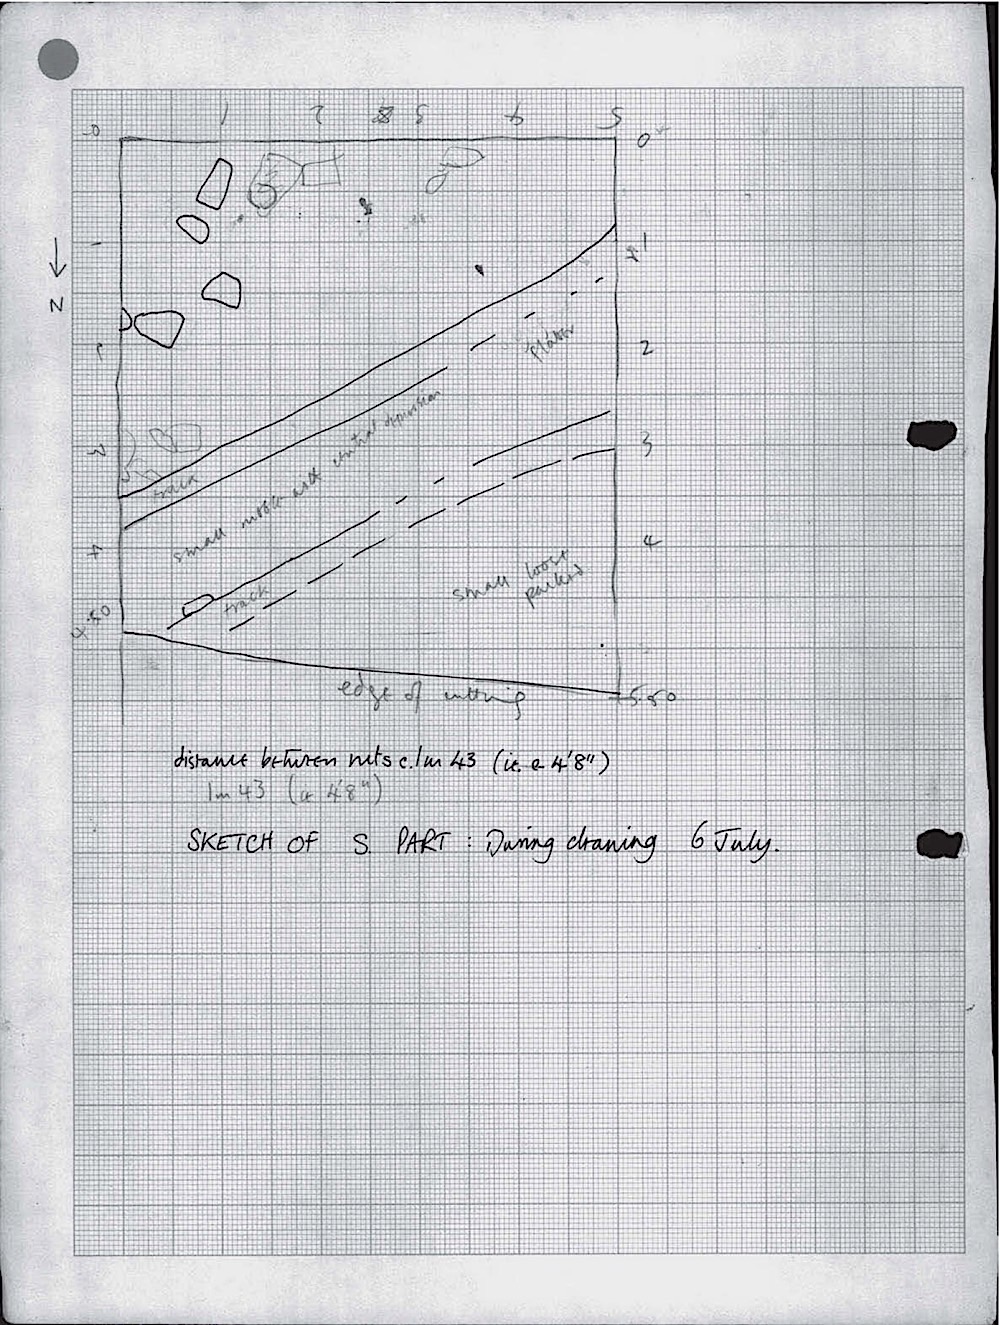 1 2 3 4 5
0 0
1 1
N
2 2
flatter
3 3
track
small rubble with central depression
4 4
small loose
packed
track
4.80
edge of cutting
5.50
distance between ruts c. 1m 43 (i.e. c 4'8")
1m 43 (ie 4'8")
SKETCH OF S. PART : During cleaning 6 July.